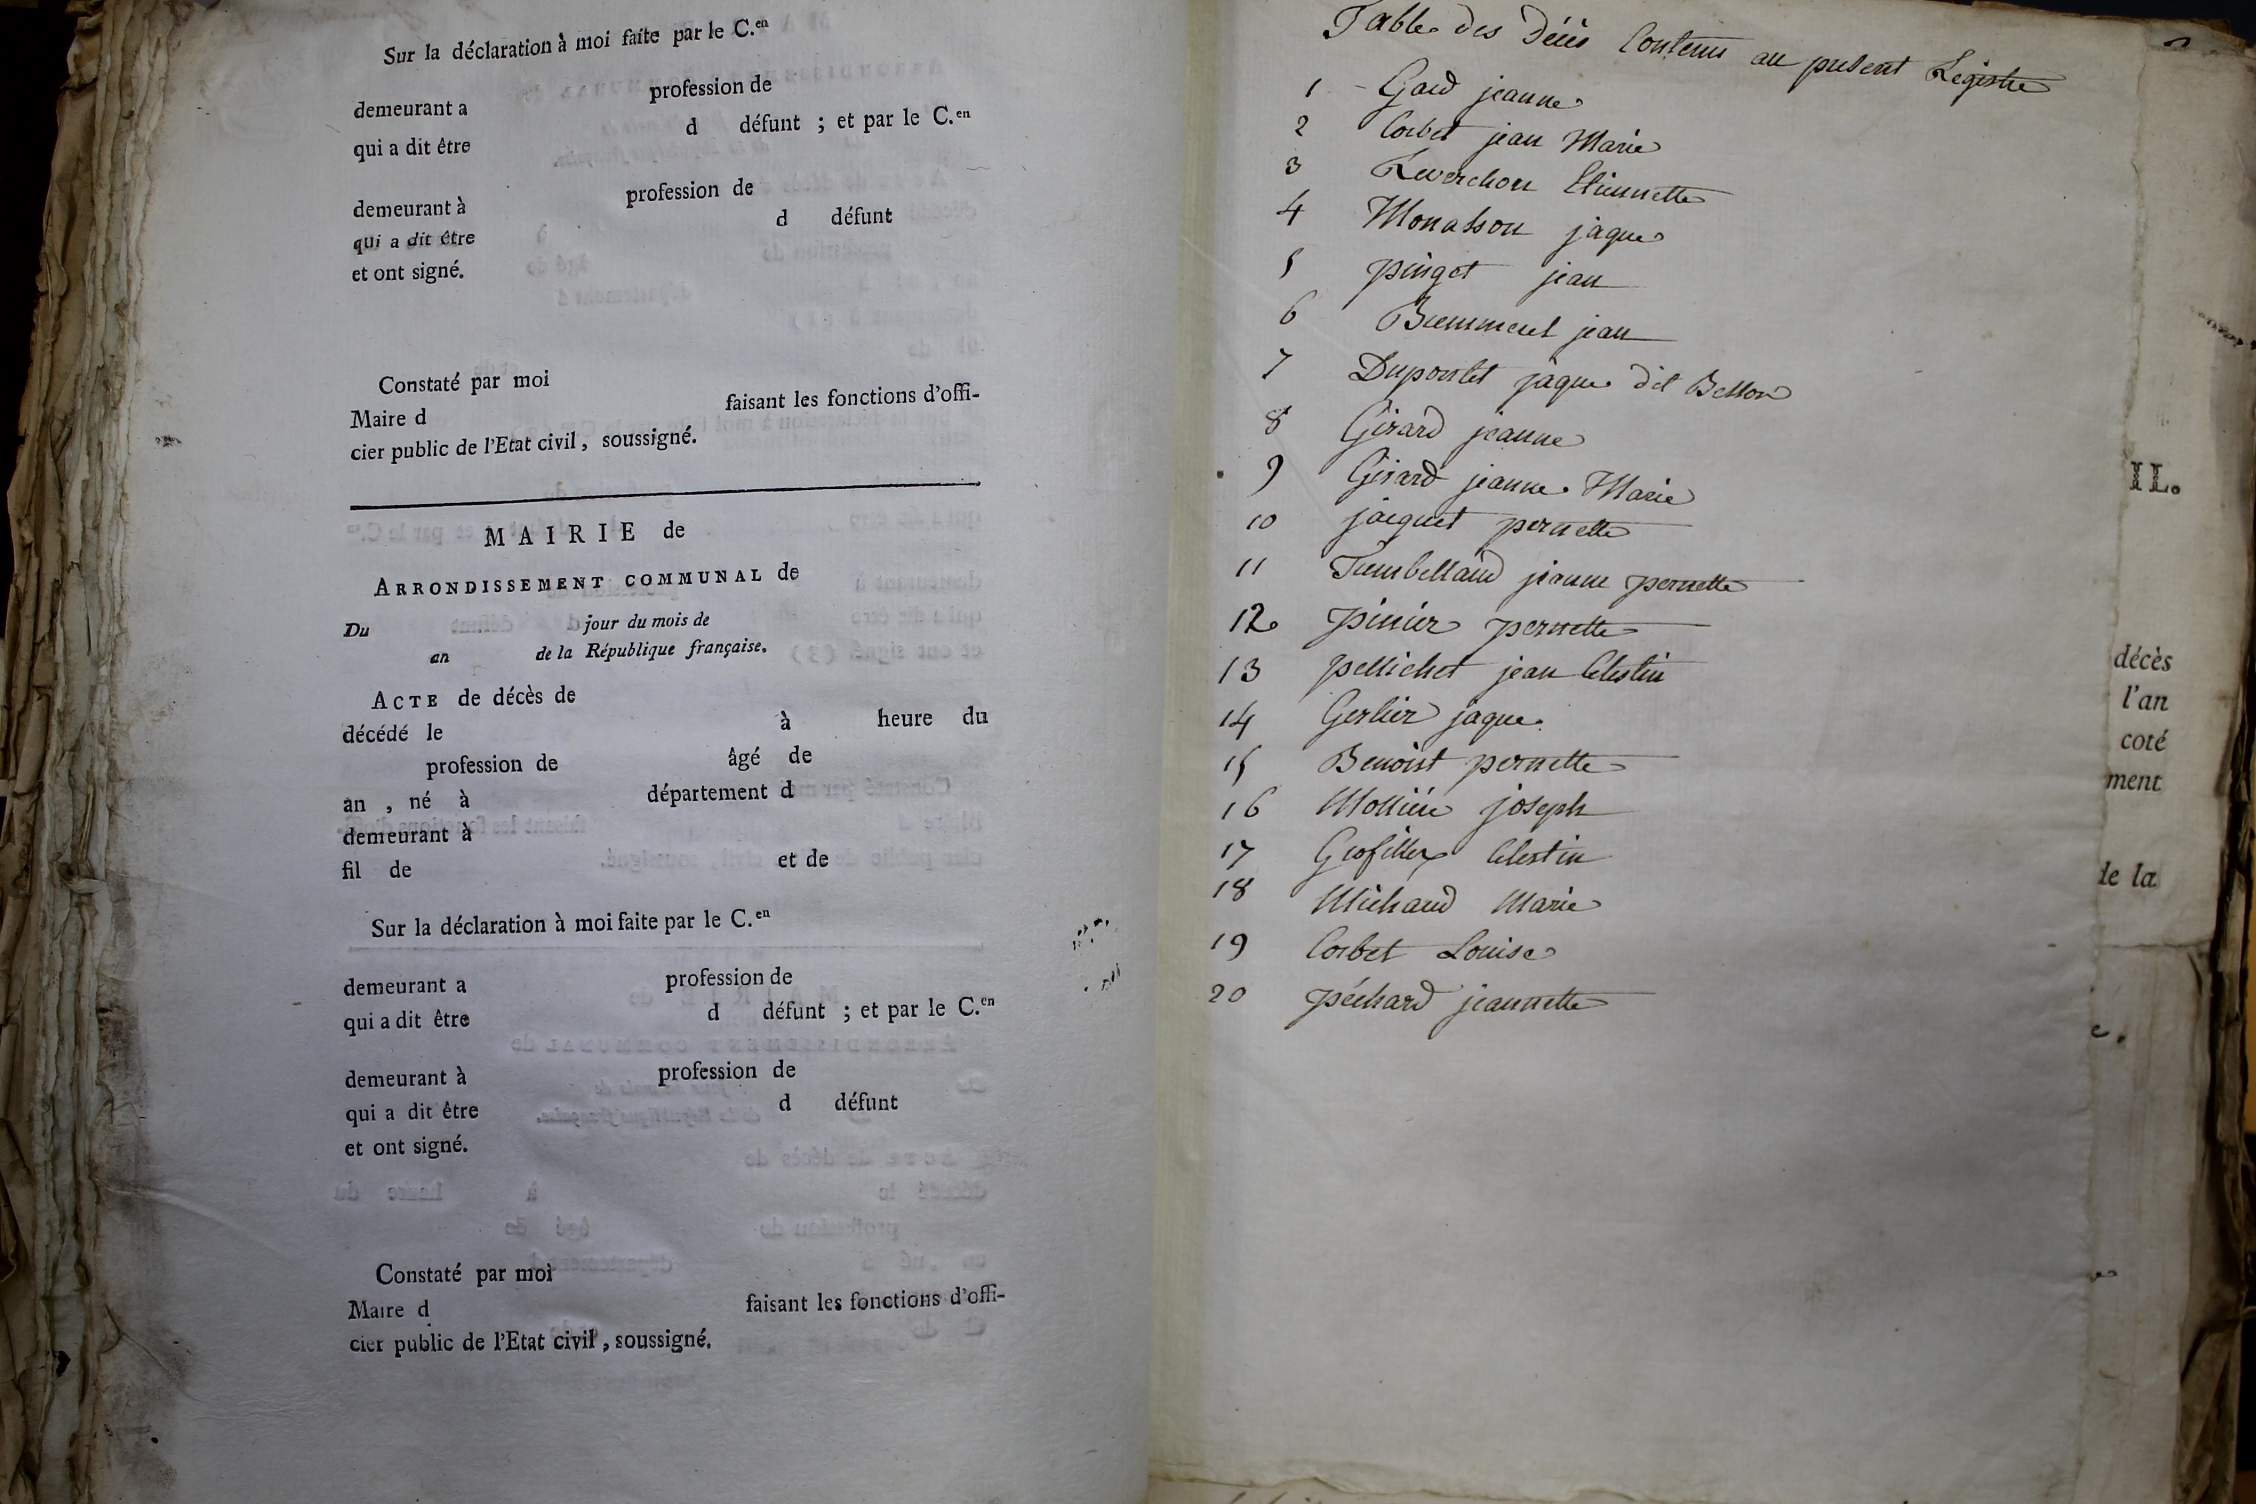 Sur la déclaration à moi faite par le C.en
demeurant a profession de
qui a dit être d défunt ; et par le C.en
demeurant à profession de
qui a dit être d défunt
et ont signé.
Constaté par moi
Maire d faisant les fonctions d'offi-
cier public de l'Etat civil, soussigné.
MAIRIE de
ARRONDISSEMENT COMMUNAL de
Du jour du mois de
an de la République française.
ACTE de décès de
décédé le à heure du
profession de âgé de
an , né à département d
demeurant à
fil de et de
Sur la déclaration à moi faite par le C.en
demeurant a profession de
qui a dit être d défunt ; et par le C.en
demeurant à profession de
qui a dit être d défunt
et ont signé.
Constaté par moi
Maire d faisant les fonctions d'offi-
cier public de l'Etat civil, soussigné.
Table des Décès Contenus au présent Registre
1 Gard jeanne
2 Corbet jean Marie
3 Reverchon Etiennette
4 Monasson jaque
5 pinget jean
6 jean
7 Dupontet jaque dit Bellon
8 Girard jeanne
9 Girard jeanne Marie
10 jacquet pernette
11 jeanne pernette
12 pinier pernette
13 pellichet jean Celestin
14 Gerlier jaque
15 Benoist pernette
16 Mollier joseph
17 Grofillex Celestin
18 Michaud Marie
19 Corbet Louise
20 péchard jeannette
IL.
décès
l'an
coté
ment
de la